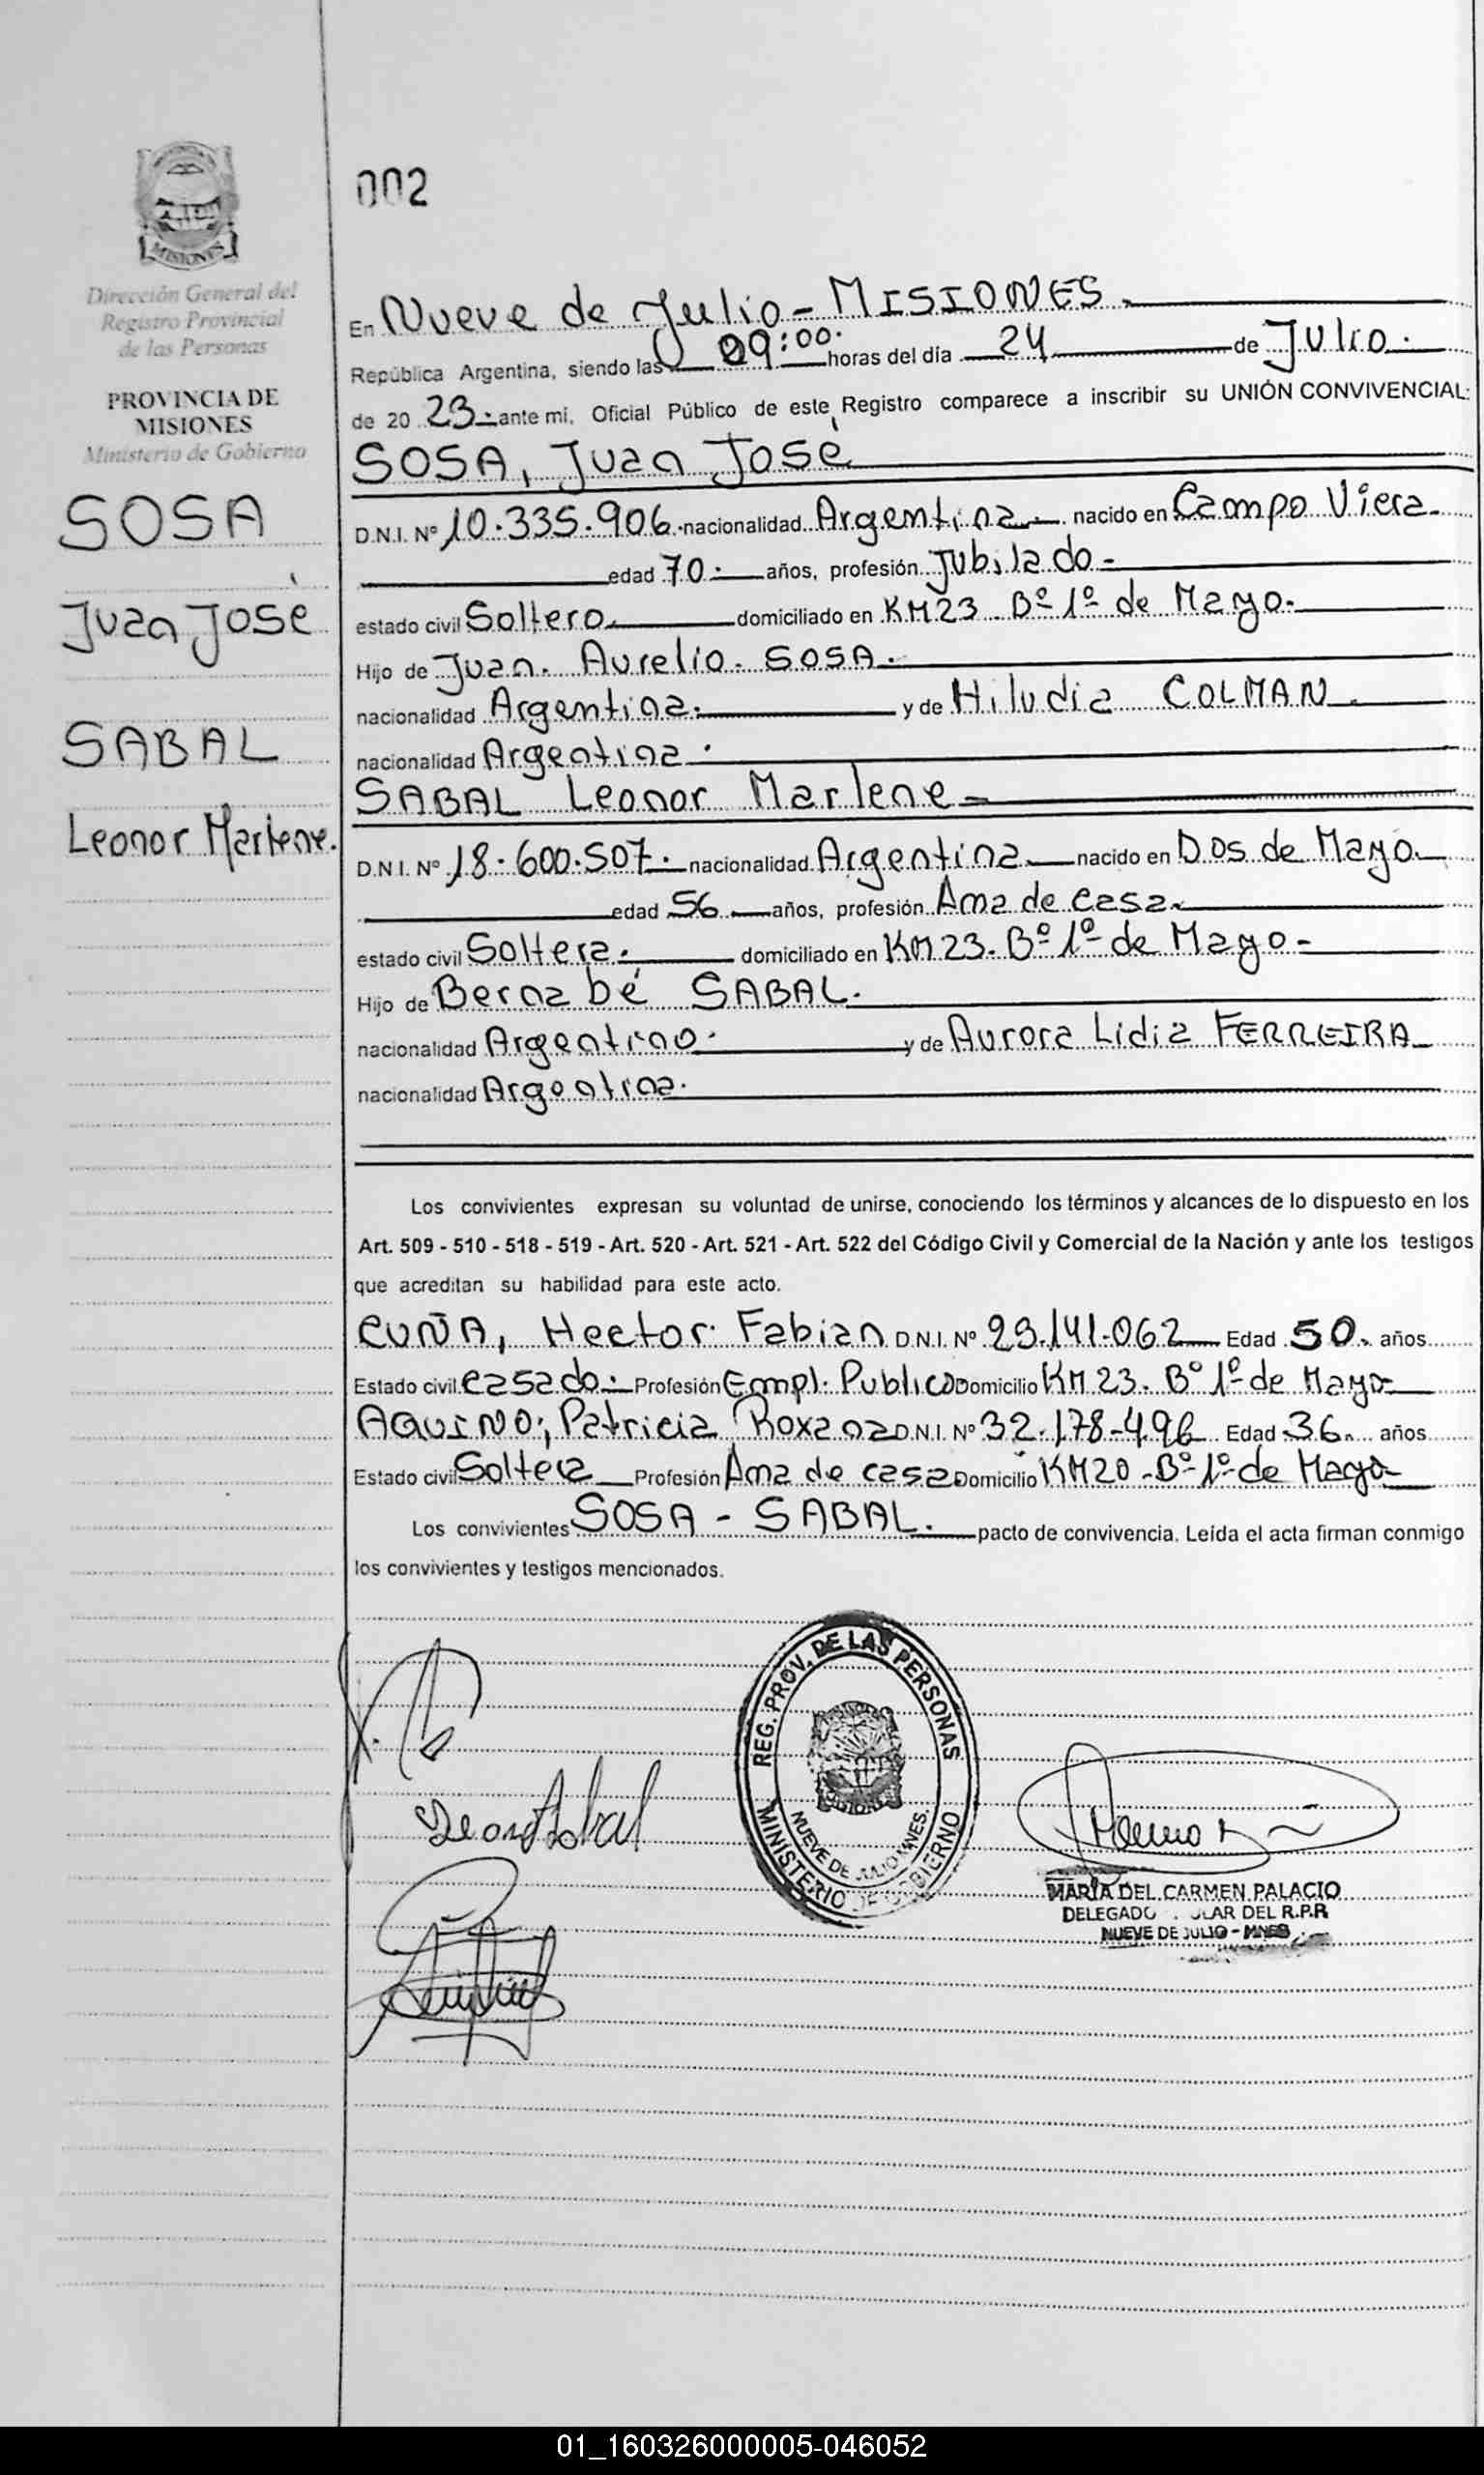 002
Dirección General del
Registro Provincial
de las Personas
PROVINCIA DE
MISIONES
Ministerio de Gobierno
SOSA
Juan José
SABAL
Leonor Marlene.
En Nueve de Julio - MISIONES.
República Argentina, siendo las 09:00. horas del día 24 de Julio.
de 20 23.- ante mi, Oficial Público de este Registro comparece a inscribir su UNIÓN CONVIVENCIAL:
SOSA, Juan José
D.N.I. Nº 10.335.906. nacionalidad Argentina.- nacido en Campo Viera.
edad 70.- años, profesión Jubilado-
estado civil Soltero. domiciliado en KM23. Bº 1º de Mayo.
Hijo de Juan. Aurelio. SOSA.
nacionalidad Argentina. y de Hiludia COLMAN.
nacionalidad Argentina.
SABAL Leonor Marlene-
D.N.I. Nº 18.600.507. nacionalidad Argentina nacido en Dos de Mayo.
edad 56 años, profesión Ama de casa.
estado civil Soltera. domiciliado en KM23. Bº 1º de Mayo-
Hijo de Bernabé SABAL.
nacionalidad Argentino. y de Aurora Lidia FERREIRA
nacionalidad Argentina.
Los convivientes expresan su voluntad de unirse, conociendo los términos y alcances de lo dispuesto en los
Art. 509 - 510 - 518 - 519 - Art. 520 - Art. 521 - Art. 522 del Código Civil y Comercial de la Nación y ante los testigos
que acreditan su habilidad para este acto.
CUÑA, Hector Fabian D.N.I. Nº 23.141.062 Edad 50. años
Estado civil casado. Profesión Empl. Publico Domicilio KM 23. Bº 1º de Mayo
AQUINO, Patricia Roxana D.N.I. Nº 32.178.496 Edad 36. años
Estado civil Soltera Profesión Ama de casa Domicilio KM20 - Bº 1º de Mayo
Los convivientes SOSA - SABAL. pacto de convivencia. Leída el acta firman conmigo
los convivientes y testigos mencionados.
REG. PROV. DE LAS PERSONAS
NUEVE DE JULIO MNES.
MINISTERIO DE GOBIERNO
MARIA DEL CARMEN PALACIO
DELEGADO DEL R.P.P.
NUEVE DE JULIO - MNES
01_160326000005-046052